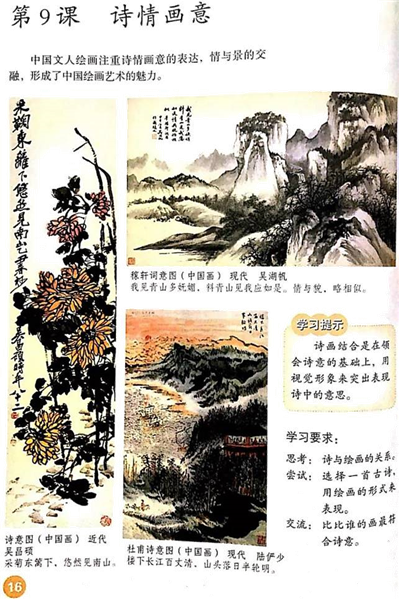 第9课 诗情画意
中国文人绘画注重诗情画意的表达，情与景的交
融，形成了中国绘画艺术的魅力。
東籬下悠然見南山
稼轩词意图（中国画） 现代 吴湖帆
我见青山多妩媚，料青山见我应如是。情与貌，略相似。
学习提示
诗画结合是在领
会诗意的基础上，用
视觉形象来突出表现
诗中的意思。
学习要求：
思考：诗与绘画的关系。
尝试：选择一首古诗，
用绘画的形式来
表现。
交流：比比谁的画最符
合诗意。
诗意图（中国画） 近代
吴昌硕
采菊东篱下，悠然见南山。
杜甫诗意图（中国画） 现代 陆俨少
楼下长江百丈清，山头落日半轮明。
16